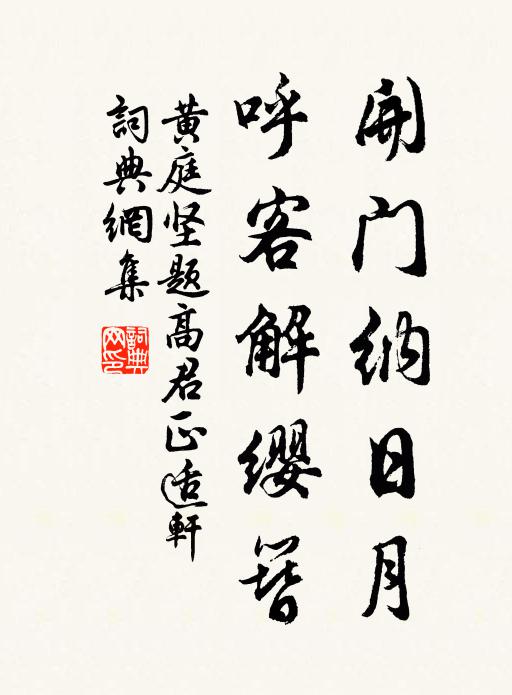 開门纳日月
呼客解缨簪
黄庭坚题高君正适軒
詞典網集
詞典網印